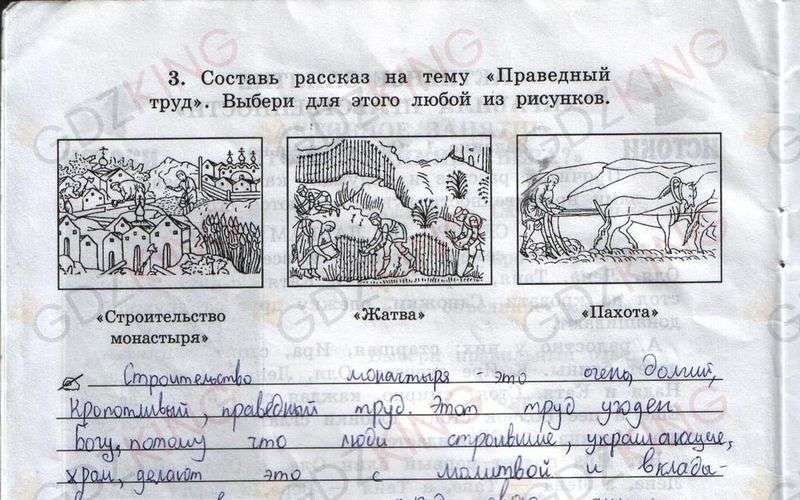 3. Составь рассказ на тему «Праведный
труд». Выбери для этого любой из рисунков.
«Строительство
монастыря»
«Жатва»
«Пахота»
Строительство монастыря - это очень, долгий,
кропотливый, праведный труд. Этот труд угоден
Богу, потому что люди строившие, украшающие,
храм, делают это с молитвой и вклады-
GDZKING